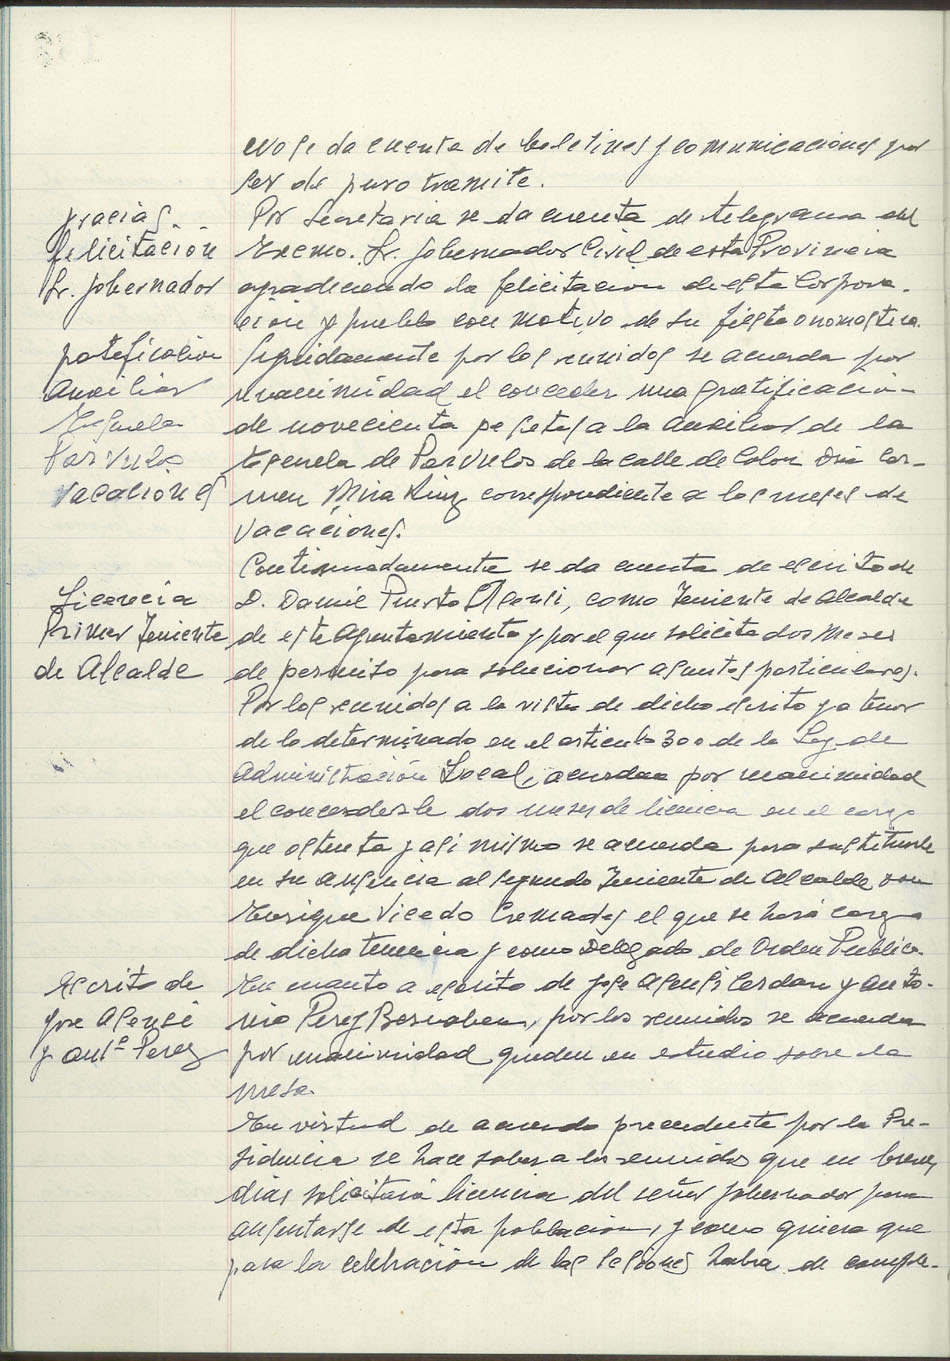 se da cuenta de boletines y comunicaciones por
ser de puro tramite.
gracias
felicitación
Sr. gobernador
Por Secretaria se da cuenta de telegrama del
Excmo. Sr. gobernador Civil de esta Provincia
agradeciendo la felicitacion de esta Corpora-
ción y pueblo con motivo de su fiesta onomastica.
gratificacion
Auxiliar
Escuela
Parvulos
vacaciones
Seguidamente por los reunidos se acuerda por
unanimidad el conceder una gratificacion
de novecienta pesetas a la auxiliar de la
Escuela de Parvulos de la calle de Colon Dña Car-
men Mira Ruiz correspondiente a los meses de
vacaciones.
Licencia
Primer Teniente
de Alcalde
Continuadamente se da cuenta de escrito de
D. Daniel Puerto Asensi, como Teniente de Alcalde
de este Ayuntamiento y por el que solicita dos meses
de permiso para solucionar asuntos particulares.
Por los reunidos a la vista de dicho escrito y a tenor
de lo determinado en el articulo 300 de la Ley de
Administración Local, acuerdan por unanimidad
el concederle dos meses de licencia en el cargo
que ostenta y asi mismo se acuerda para sustituirle
en su ausencia al segundo Teniente de Alcalde don
Enrique Vicedo Cremades el que se hará cargo
de dicha tenencia y como Delegado de Orden Publico.
Escrito de
Jose Asensi
y Antº Perez
En cuanto a escrito de Jose Asensi Cerdan y Anto-
nio Perez Bernabeu, por los reunidos se acuerda
por unanimidad queden en estudio sobre la
mesa.
En virtud de acuerdo precedente por la Pre-
sidencia se hace saber a los reunidos que en breves
dias solicitará licencia del señor gobernador para
ausentarse de esta poblacion, y como quiera que
para la celebración de las sesiones habra de comple-